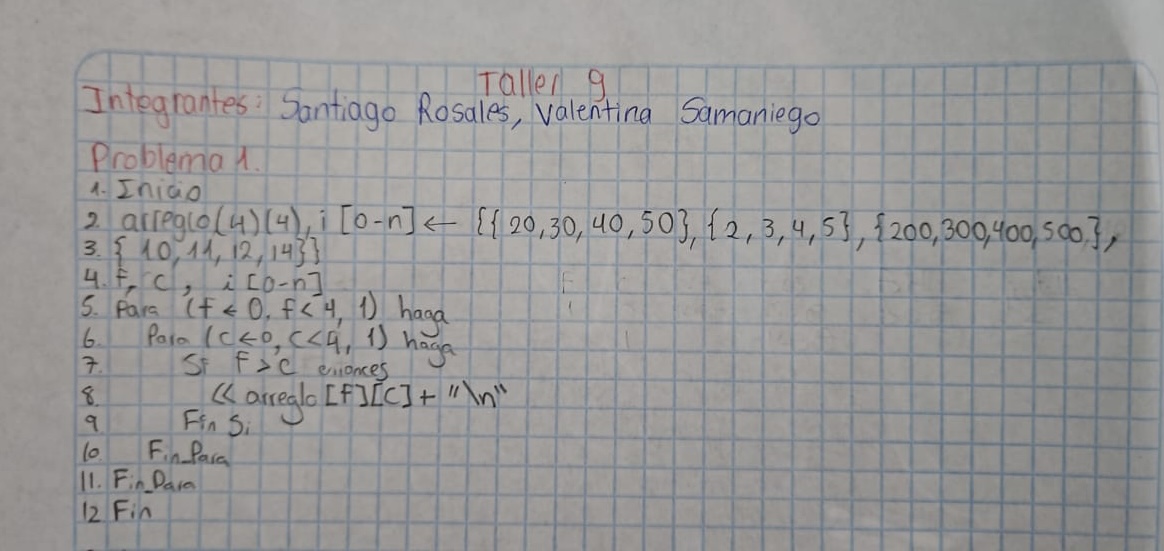 Taller 9
Integrantes: Santiago Rosales, Valentina Samaniego
Problema 1.
1. Inicio
2. arreglo(4)(4), i [0-n] ← {{20,30,40,50},{2,3,4,5},{200,300,400,500},
3. {10,11,12,14}}
4. f, c, i [0-n]
5. Para (f ← 0, f < 4, 1) haga
6. Para (c ← 0, c < 4, 1) haga
7. Si f > c entonces
8. << arreglo [f][c] + "\n"
9 Fin Si
10. Fin_Para
11. Fin_Para
12 Fin